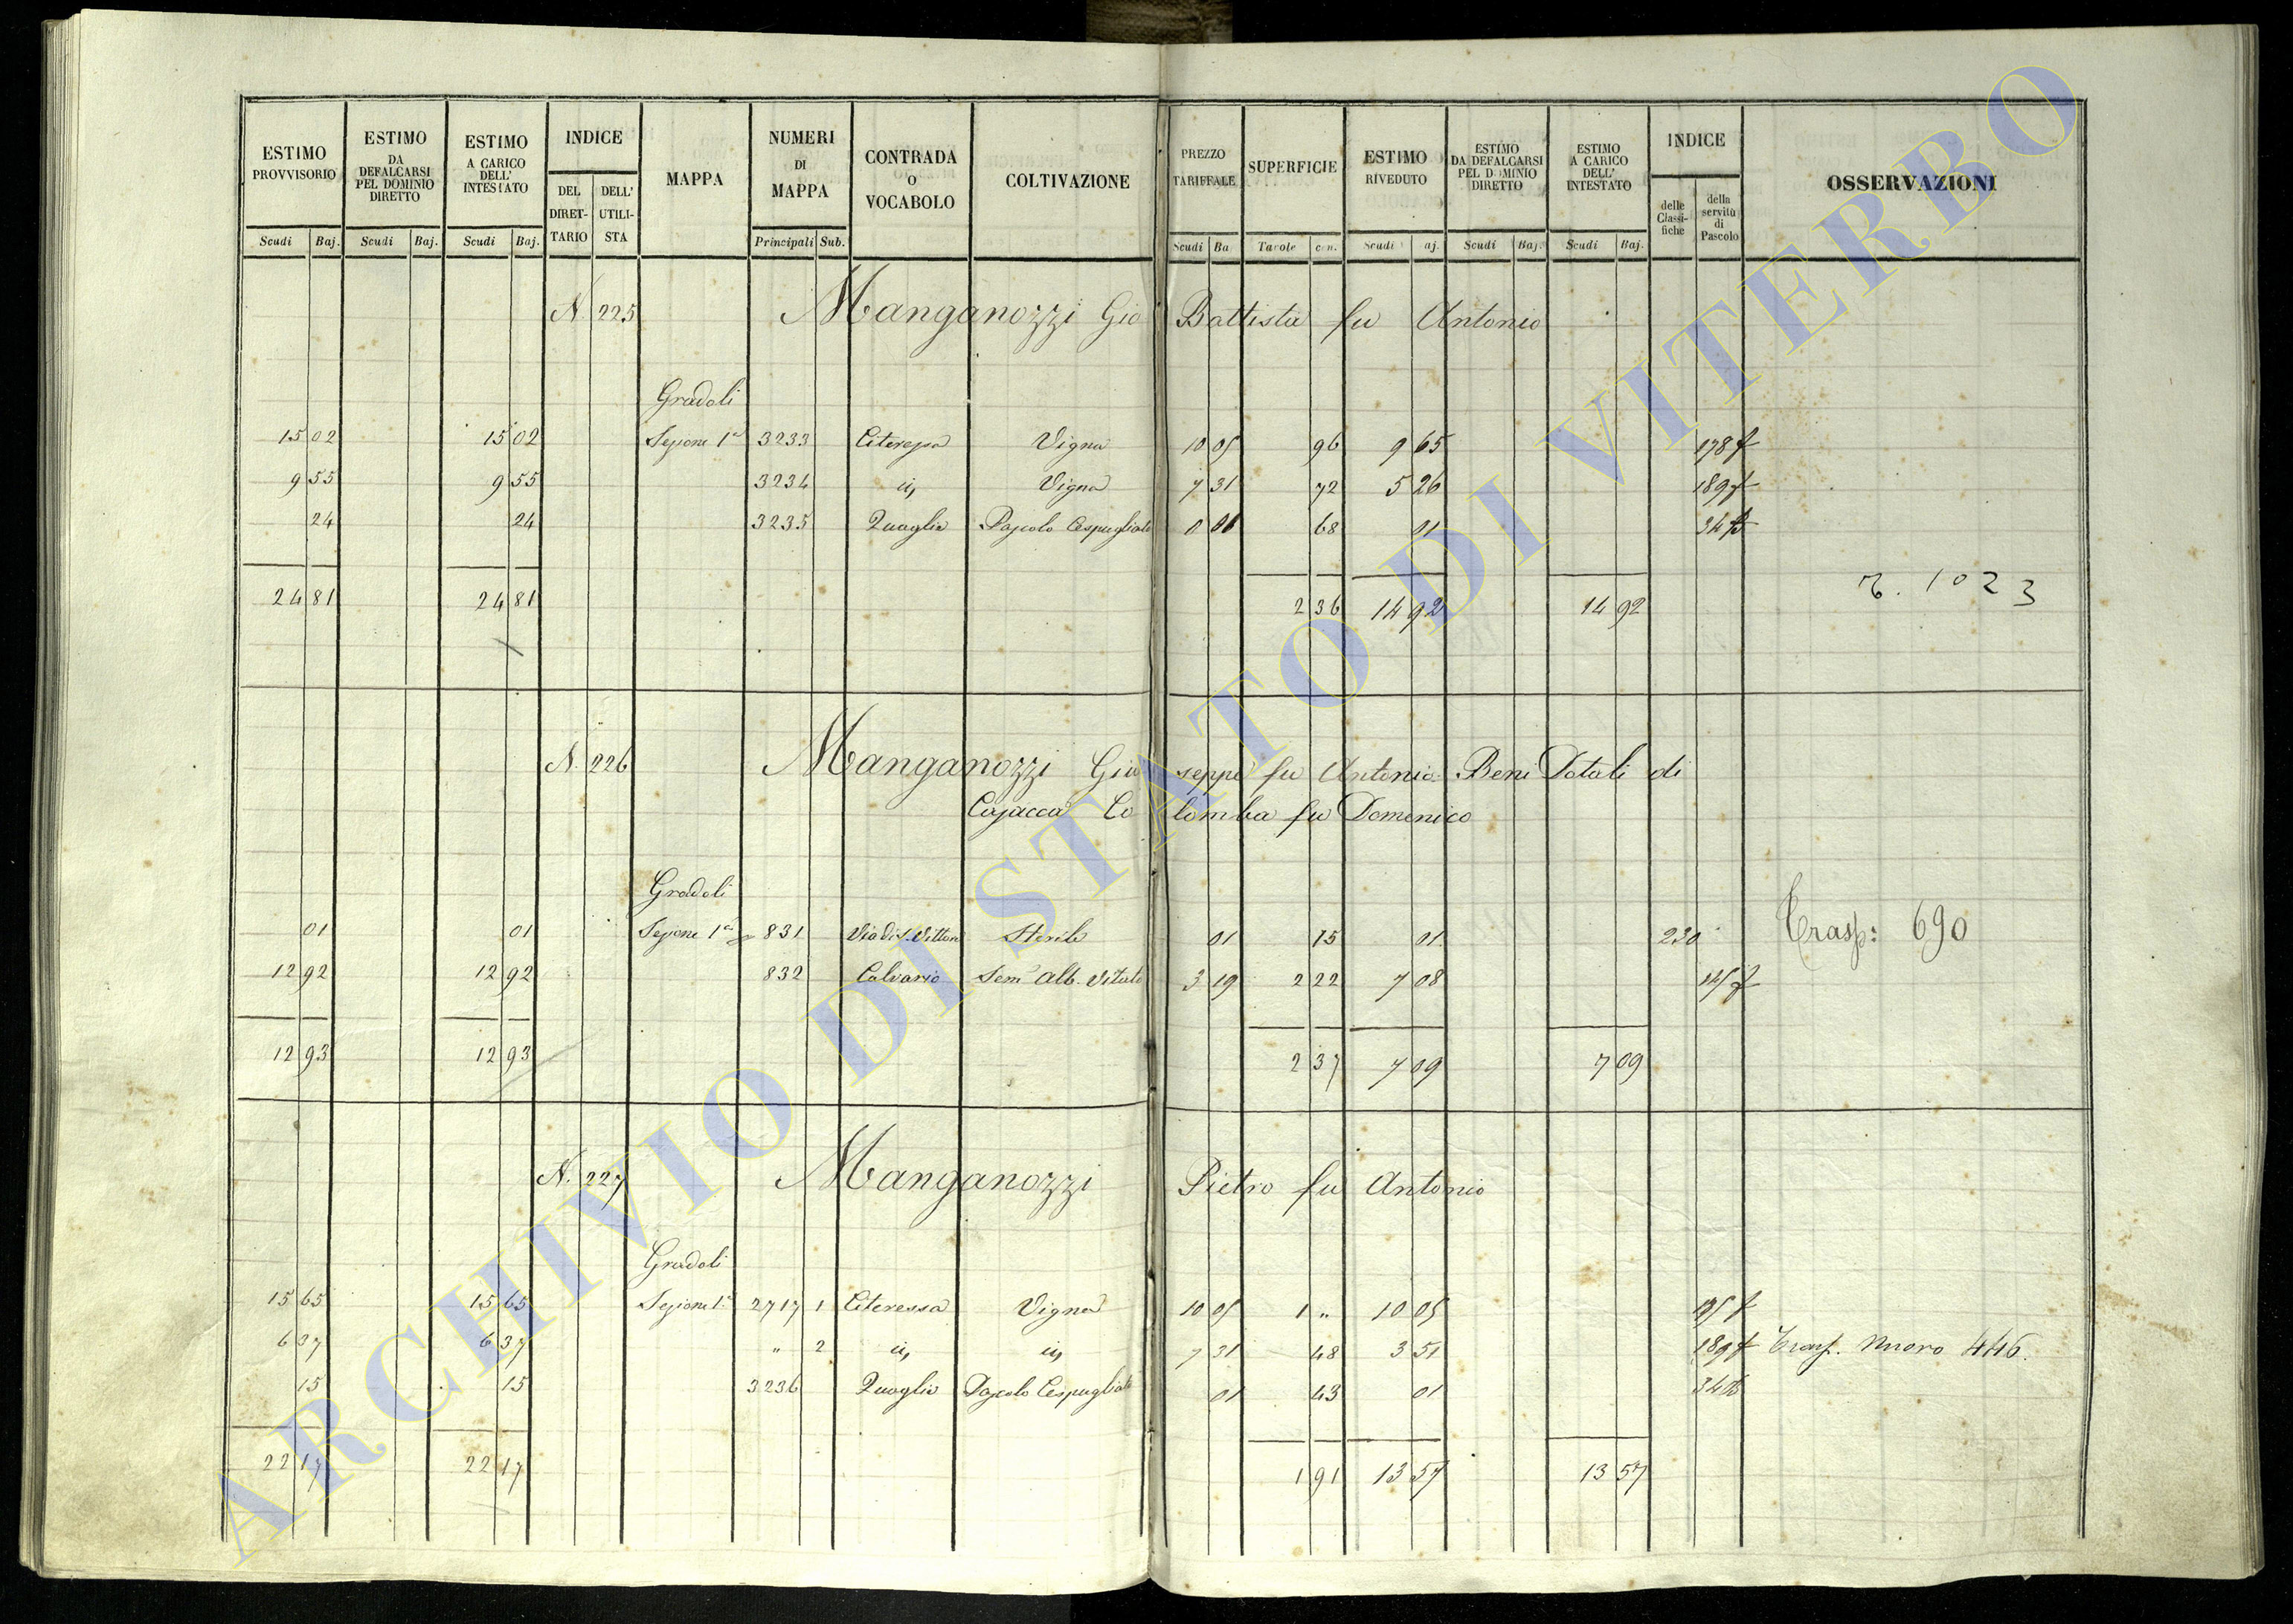 ESTIMO PROVVISORIO Scudi Baj.
ESTIMO DA DEFALCARSI PEL DOMINIO DIRETTO Scudi Baj.
ESTIMO A CARICO DELL' INTESTATO Scudi Baj.
INDICE DEL DIRET-TARIO DELL' UTILI-STA
MAPPA
NUMERI DI MAPPA Principali Sub.
CONTRADA O VOCABOLO
COLTIVAZIONE
PREZZO TARIFFALE Scudi Ba
SUPERFICIE Tavole cen.
ESTIMO RIVEDUTO Scudi aj.
ESTIMO DA DEFALCARSI PEL DOMINIO DIRETTO Scudi Baj.
ESTIMO A CARICO DELL' INTESTATO Scudi Baj.
INDICE delle Classi-fiche della servitù di Pascolo
OSSERVAZIONI
N. 225 Manganozzi Gio Battista fu Antonio
Gradoli
15 02 15 02 Sezione 1a 3233 Citeressa Vigna 10 05 96 9 65 178 f
9 55 9 55 3234 id, Vigna 7 31 72 5 26 189 f
24 24 3235 Quaglia Pascolo Cespugliato 0 01 68 01 34
24 81 24 81 2 36 14 92 14 92 1023
N. 226 Manganozzi Giu seppe fu Antonio Beni Dotali di
Cajacca Co lomba fu Domenico
Gradoli
01 01 Sezione 1a 831 Via di S. Vittore Sterile 01 15 01 230 Trasp: 690
12 92 12 92 832 Calvario Sem. Alb. Vitato 3 19 2 22 7 08
12 93 12 93 2 37 7 09 7 09
N. 227 Manganozzi Pietro fu Antonio
Gradoli
15 65 15 65 Sezione 1a 2717 1 Citeressa Vigna 10 05 1 " 10 05
6 37 6 37 " 2 id, id, 7 31 48 3 51 189 f Trasp. Nuovo 446.
15 15 3236 Quaglia Pascolo Cespugliato 01 43 01 34
22 17 22 17 1 91 13 57 13 57
ARCHIVIO DI STATO DI VITERBO